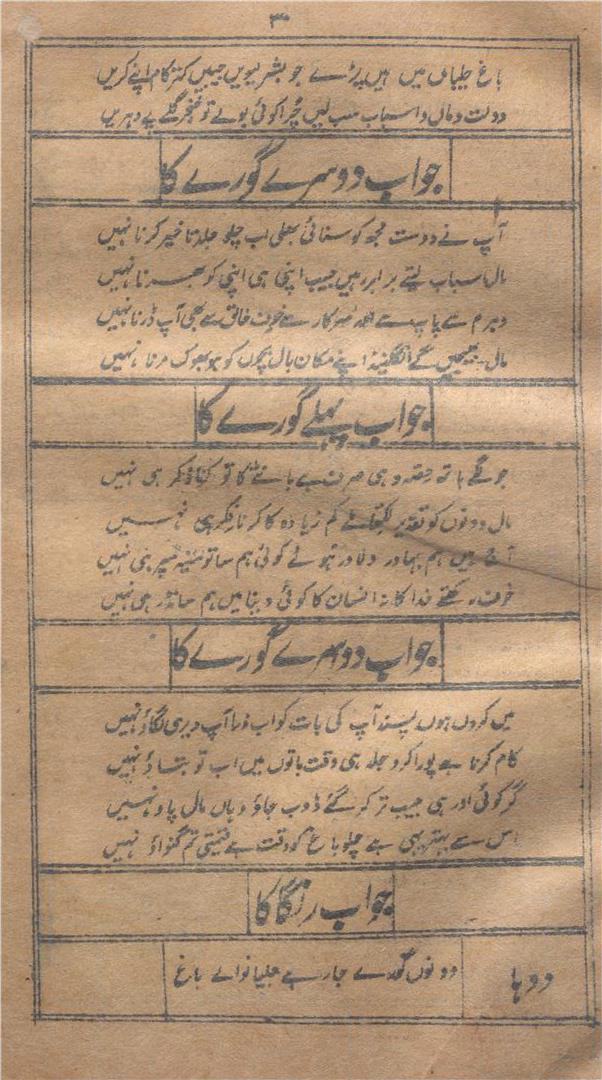 ۳
باغ جلیاں میں ہیں پڑے جو بشر لیویں جیبیں کتر کام اپنے کریں
دولت و مال و اسباب سب لیں چُرا کوئی بولے تو خنجر گلے پے دہریں
جواب دوسرے گورے کا
آپ نے دوست مجھ کو سنائی بھلی اب چلو جلد تاخیر کرنا نہیں
مال اسباب لیتے برابر رہیں جیب اپنی ہی اپنی کو بھرنا نہیں
دہرم سے پاپ سے اور سرکار سے خوف خالق سے بھی آپ ڈرنا نہیں
مال بھیجیں گے انگلینڈ اپنے مکان بال بچوں کو ہو بھوک مرنا نہیں
جواب پہلے گورے کا
جو لگے ہاتھ حصہ وہی صرف ہے بانٹنے کا تو کہنا ذکر ہی نہیں
مال دونوں کو تقدیر کم زیادہ کا کرنا فکر ہی نہیں
آج ہیں ہم بہادر دلاور کوئی ہم سا تو ہی نہیں
خوف رکھتے خدا کا نہ انسان کا کوئی دنیا میں ہم سا نڈر ہی نہیں
جواب دوسرے گورے کا
میں کروں ہوں پسند آپ کی بات کو اب ذرا آپ دیری لگاؤ نہیں
کام کرنا ہے پورا کرو جلد ہی وقت باتوں میں اب تو بتاؤ نہیں
گر کوئی اور ہی جیب تر کر گئے ڈوب جاؤ وہاں مال پاؤ نہیں
اس سے بہتر یہی ہے چلو باغ کو وقت ہے قیمتی تم گنواؤ نہیں
جواب رنگا کا
دوہا
دونوں گورے جا رہے جلیانوالے باغ